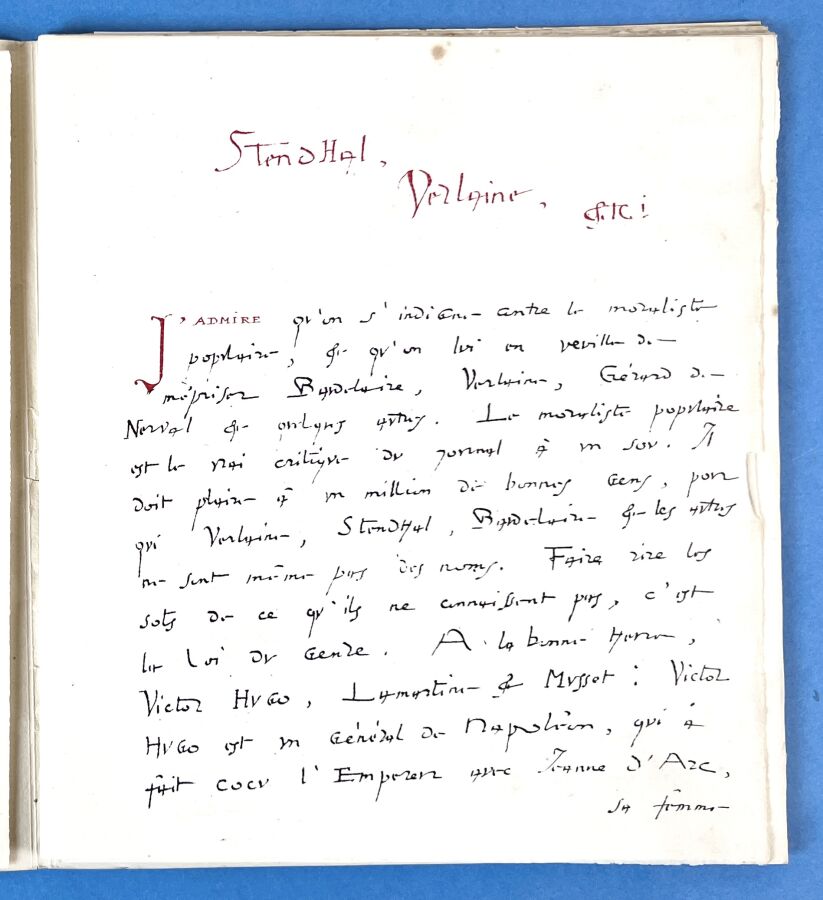 Stendhal,
Verlaine, &c!
J'ADMIRE qu'on s'indigne contre le moraliste
populaire, & qu'on lui en veuille de
mépriser Baudelaire, Verlaine, Gérard de
Nerval & quelques autres. Le moraliste populaire
est le vrai critique du journal à un sou. Il
doit plaire à un million de bonnes gens, pour
qui Verlaine, Stendhal, Baudelaire & les autres
ne sont même pas des noms. Faire rire les
sots de ce qu'ils ne connaissent pas, c'est
la loi du genre. A la bonne heure,
Victor Hugo, Lamartine & Musset : Victor
Hugo est un général de Napoléon, qui a
fait cocu l'Empereur avec Jeanne d'Arc,
sa femme